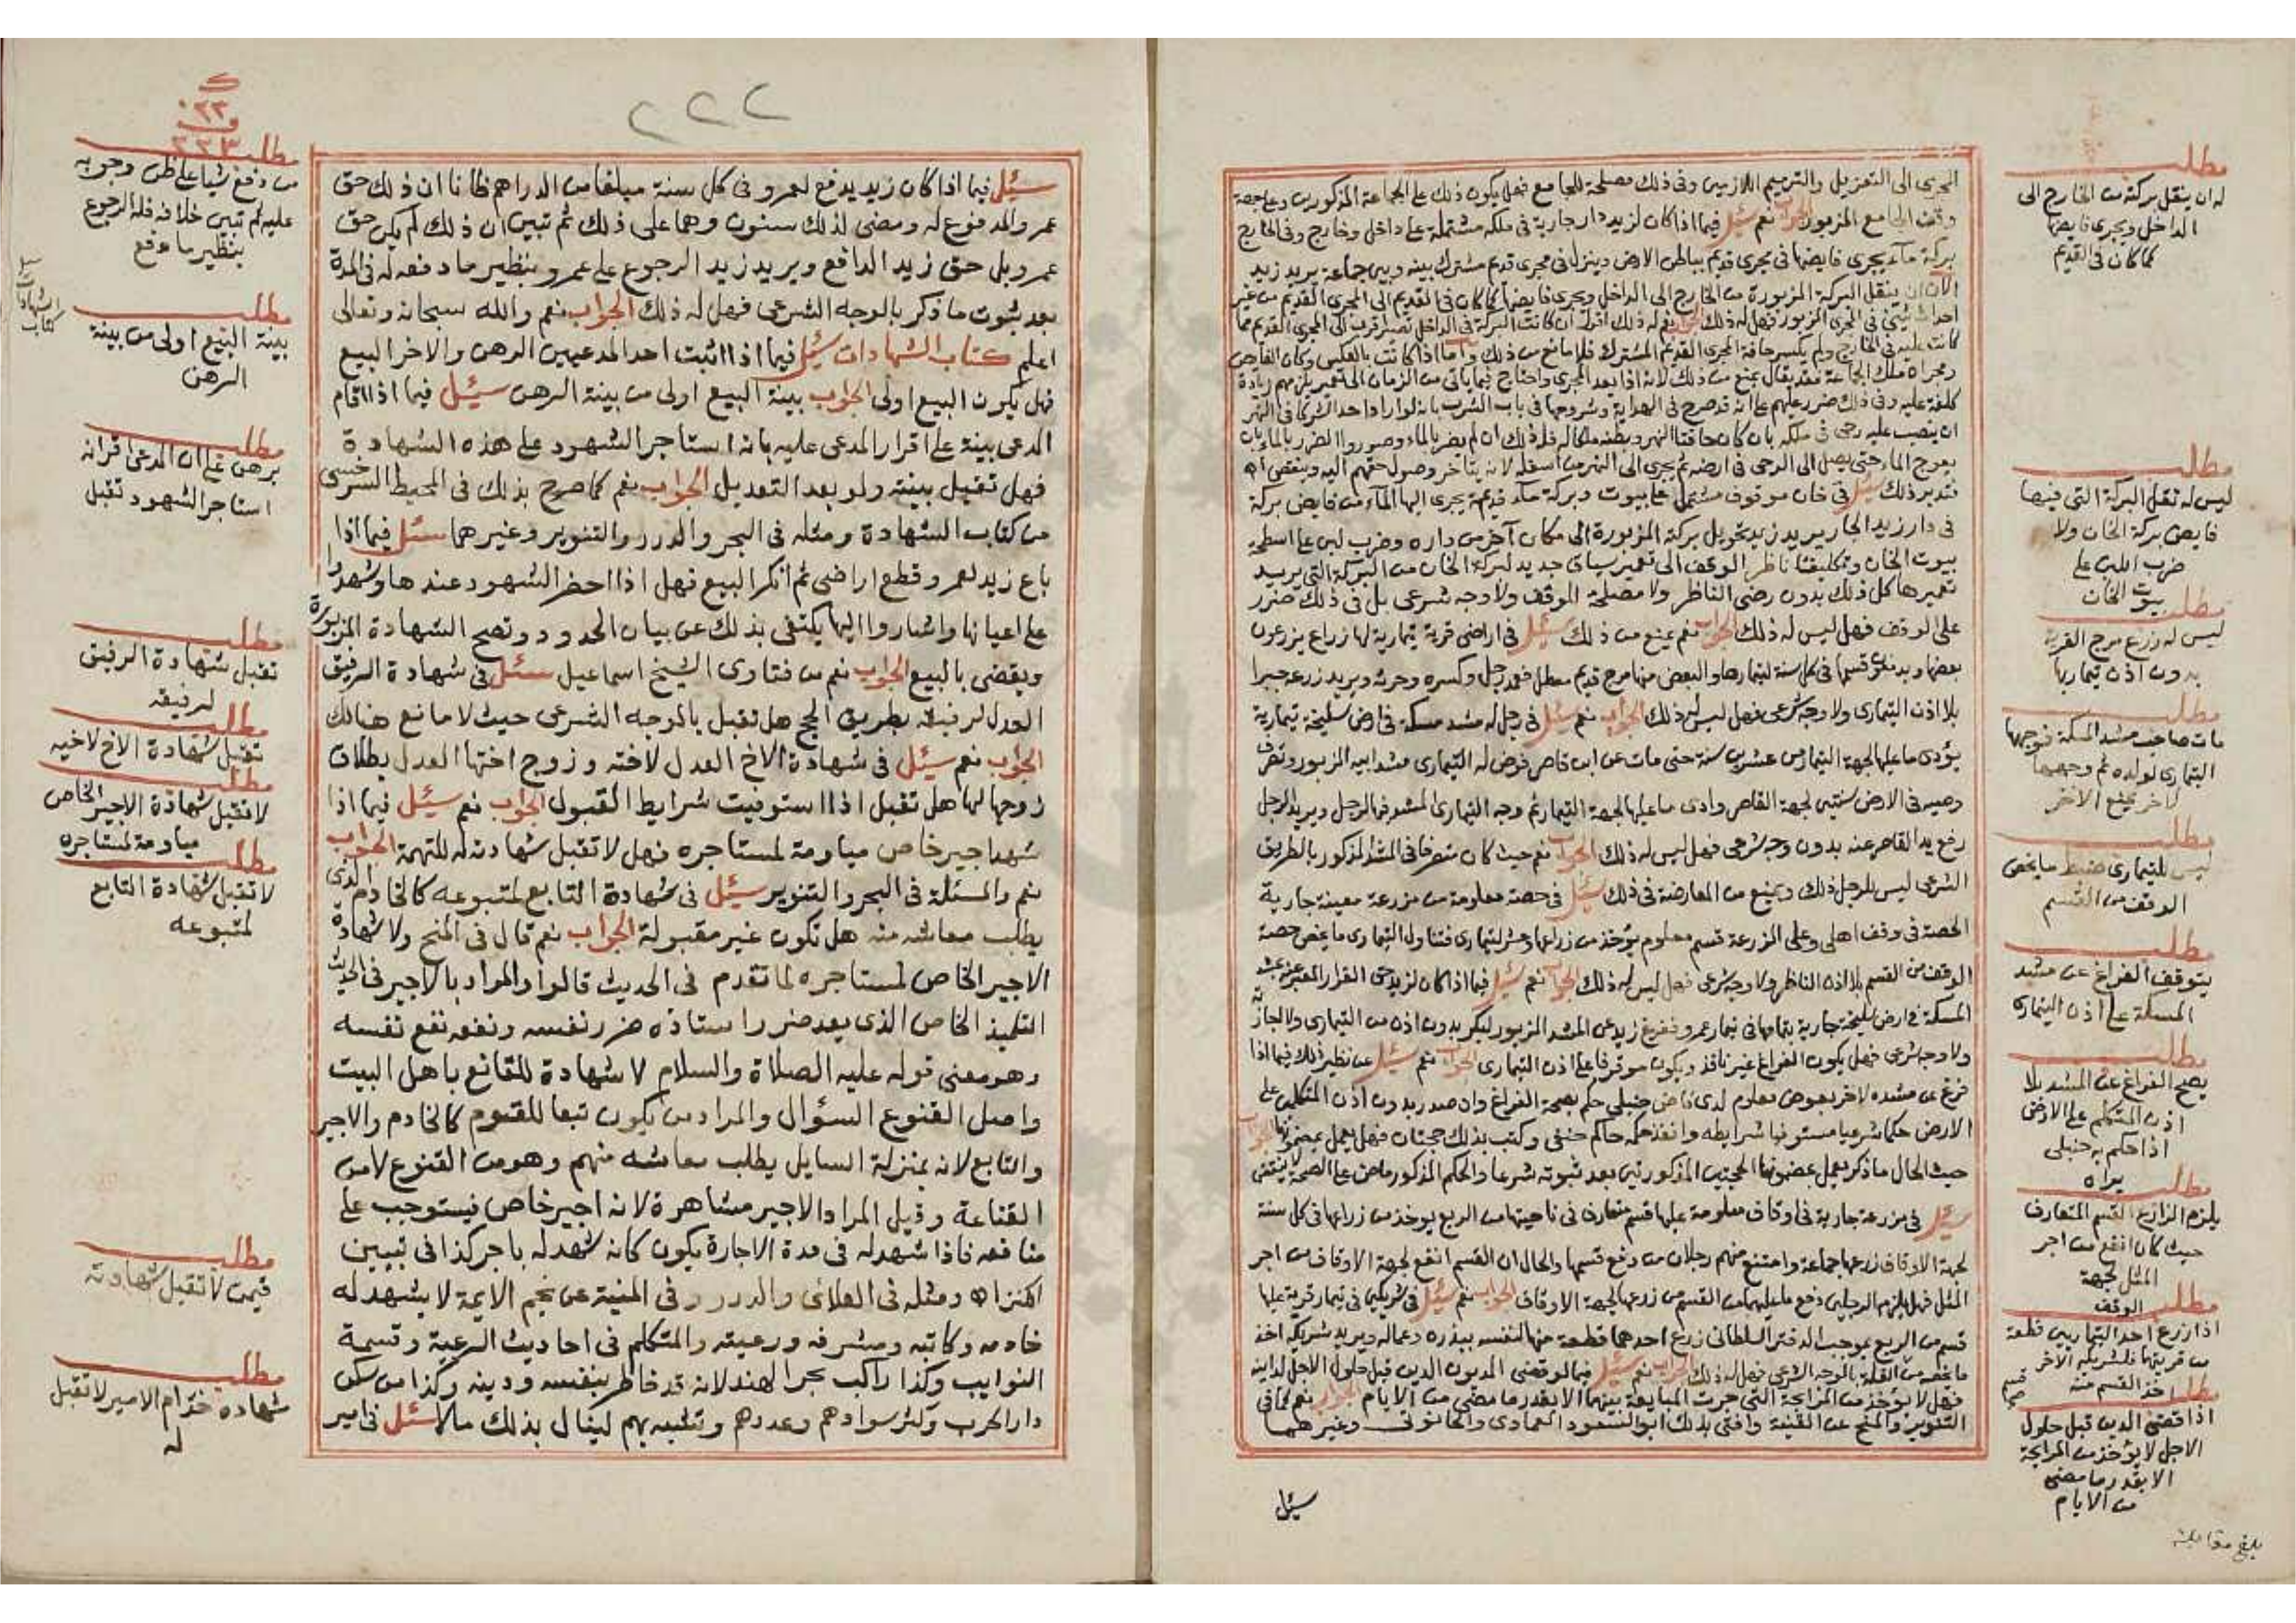 المجرى الى التعزيل والترميم اللازمين وفى ذلك مصلحة للجامع فهل يكون ذلك على الجماعة المذكورين وعلى جهة
وقف الجامع المزبور الجواب نعم سئل فيما اذا كان لزيد دار جارية فى ملكه مشتملة على داخل وخارج وفى الخارج
بركة ماء يجرى فايضها فى مجرى قديم بباطن الارض وينزل فى مجرى قديم مشترك بينه وبين جماعة يريد زيد
الآن ان ينقل البركة المزبورة من الخارج الى الداخل ويجرى فايضها كما كان فى القديم الى المجرى القديم من غير
احداث شئ فى المجرى المزبور فهل له ذلك الجواب نعم له ذلك اقول ان كانت البركة فى الداخل تصير اقرب الى المجرى القديم مما
كانت عليه فى الخارج ولم يكسر حافة المجرى القديم المشترك فلا مانع من ذلك واما اذا كانت بالعكس وكان الفايض
ومجراه ملك الجماعة فقد يقال يمنع من ذلك لانه اذا بعد المجرى واحتاج فيما ياتى من الزمان الى تعمير يلزمهم زيادة
كلفة عليه وفى ذلك ضرر عليهم على انه قد صرح فى الهداية وشروحها فى باب الشرب بانه لو اراد احد الشركا فى النهر
ان ينصب عليه رحى فى ملكه بان كان حافتا النهر وبطنه ملكا له فله ذلك ان لم يضر بالماء وصوروا الضرر بالماء بان
يعوج الماء حتى يصل الى الرحى فى ارضه ثم يجرى الى النهر من اسفله لانه يتأخر وصول حقهم اليه وينقص اه
فتدبر ذلك سئل فى خان موقوف مشتمل على بيوت وبركة ماء قديمة يجرى اليها الماء من فايض بركة
فى دار زيد الجار يريد زيد تحويل بركته المزبورة الى مكان آخر من داره وضرب لبن على اسطحة
بيوت الخان وتكليف ناظر الوقف الى تعمير سياق جديد لبركة الخان من البركة التى يريد
تعميرها كل ذلك بدون رضى الناظر ولا مصلحة الوقف ولا وجه شرعى بل فى ذلك ضرر
على الوقف فهل ليس له ذلك الجواب نعم يمنع من ذلك سئل فى اراضى قرية تيمارية لها زراع يزرعون
بعضها ويدفعون قسمها فى كل سنة لتيمارها والبعض منها مرج قديم معطل فعمد رجل وكسره وحرثه ويريد زرعه جبرا
بلا اذن التيمارى ولا وجه شرعى فهل ليس له ذلك الجواب نعم سئل فى رجل له مشد مسكة فى ارض سليخة تيمارية
يؤدى ما عليها لجهة التيمار من عشرين سنة حتى مات عن ابن قاصر فوض له التيمارى مشد ابيه المزبور وتصرف
وصيه فى الارض سنتين لجهة القاصر وادى ما عليها لجهة التيمار ثم وجه التيمارى المشد فيها لرجل ويريد الرجل
رفع يد القاصر عنه بدون وجه شرعى فهل ليس له ذلك الجواب نعم حيث كان متصرفا فى المشد المذكور بالطريق
الشرعى ليس للرجل ذلك ويمنع من المعارضة فى ذلك سئل فى حصة معلومة من مزرعة معينة جارية
الحصة فى وقف اهلى وعلى المزرعة قسم معلوم يؤخذ من زراعها وعشر لتيمارى فتناول التيمارى ما يخص حصة
الوقف من القسم بلا اذن الناظر ولا وجه شرعى فهل ليس له ذلك الجواب نعم سئل فيما اذا كان لزيد حق القرار المعبر عنه بمشد
المسكة فى ارض سليخة جارية بتمامها فى تيمار عمرو ففرغ زيد عن المشد المزبور لبكر بدون اذن من التيمارى ولا اجازة
ولا وجه شرعى فهل يكون الفراغ غير نافذ ويكون موقوفا على اذن التيمارى الجواب نعم سئل عن نظير ذلك فيما اذا
فرغ عن مشده لآخر بعوض معلوم لدى قاض حنبلى حكم بصحة الفراغ وان صدر بدون اذن المتكلم على
الارض حكما شرعيا مستوفيا شرايطه وانفذ حكمه حاكم حنفى وكتب بذلك حجتان فهل يعمل بمضمونهما الجواب
حيث الحال ما ذكر يعمل بمضمون الحجتين المذكورتين بعد ثبوته شرعا والحكم المذكور ماض على الصحة لا ينتقض
سئل فى مزرعة جارية فى اوقاف معلومة عليها قسم متعارف فى ناحيتها من الربع يوخذ من زراعها فى كل سنة
لجهة الاوقاف زرعها جماعة وامتنع منهم رجلان من دفع قسمها والحال ان القسم انفع لجهة الاوقاف من اجر
المثل فهل يلزم الرجلين دفع ما عليهما من القسم من زرعها لجهة الاوقاف الجواب نعم سئل فى شريكين فى تيمار قرية عليها
قسم من الربع بموجب الدفتر السلطانى زرع احدهما قطعة منها لنفسه ببذره وعماله ويريد شريكه اخذ
ما يخصه من الغلة بالوجه الشرعى فهل له ذلك الجواب نعم سئل فيما لو قضى المديون الدين قبل حلول الاجل لداينه
فهل لا يؤخذ من المرابحة التى جرت المبايعة بينهما الا بقدر ما مضى من الايام الجواب نعم كما فى
التنوير والمنح عن القنية وافتى بذلك ابو السعود العمادى والحانوتى وغيرهما
سئل
مطلب
له ان ينقل بركة من الخارج الى
الداخل ويجرى فايضها
كما كان فى القديم
مطلب
ليس له نقل البركة التى فيها
فايض بركة الخان ولا
ضرب اللبن على
بيوت الخان
مطلب
ليس له زرع مرج القرية
بدون اذن تيماريها
مطلب
مات صاحب مشد المسكة فوجهها
التيمارى لولده ثم وجهها
لآخر يمنع الآخر
مطلب
ليس للتيمارى ضبط ما يخص
الوقف من القسم
مطلب
يتوقف الفراغ عن مشد
المسكة على اذن التيمارى
مطلب
يصح الفراغ عن المشد بلا
اذن المتكلم على الارض
اذا حكم به حنبلى
يراه
مطلب
يلزم الزارع القسم المتعارف
حيث كان انفع من اجر
المثل لجهة
الوقف
مطلب
اذا زرع احد التيماريين قطعة
من قريتهما فلشريكه الآخر
اخذ القسم منه
مطلب
اذا قضى الدين قبل حلول
الاجل لا يؤخذ من المرابحة
الا بقدر ما مضى
من الايام
بلغ مقابلة
٢٢٢
سئل فيما اذا كان زيد يدفع لعمرو فى كل سنة مبلغا من الدراهم ظانا ان ذلك حق
عمرو المدفوع له ومضى لذلك سنون وهما على ذلك ثم تبين ان ذلك لم يكن حق
عمرو بل حق زيد الدافع ويريد زيد الرجوع على عمرو بنظير ما دفعه له فى المدة
بعد ثبوت ما ذكر بالوجه الشرعى فهل له ذلك الجواب نعم والله سبحانه وتعالى
اعلم كتاب الشهادات سئل فيما اذا اثبت احد المدعيين الرهن والاخر البيع
فهل يكون البيع اولى الجواب بينة البيع اولى من بينة الرهن سئل فيما اذا اقام
المدعى بينة على اقرار المدعى عليه بانه استاجر الشهود على هذه الشهادة
فهل تقبل بينته ولو بعد التعديل الجواب نعم كما صرح بذلك فى المحيط السرخسى
من كتاب الشهادة ومثله فى البحر والدرر والتنوير وغيرهما سئل فيما اذا
باع زيد لعمرو قطع اراضى ثم انكر البيع فهل اذا احضر الشهود عندها وشهدوا
على اعيانها واشاروا اليها يكتفى بذلك عن بيان الحدود وتصح الشهادة المزبورة
ويقضى بالبيع الجواب نعم من فتاوى الشيخ اسماعيل سئل فى شهادة الرفيق
العدل لرفيقه بطريق الحج هل تقبل بالوجه الشرعى حيث لا مانع هنالك
الجواب نعم سئل فى شهادة الاخ العدل لاخته وزوج اختها العدل بطلاق
زوجها لها هل تقبل اذا استوفيت شرايط القبول الجواب نعم سئل فيما اذا
شهد اجير خاص مياومة لمستاجره فهل لا تقبل شهادته له للتهمة الجواب
نعم والمسئلة فى البحر والتنوير سئل فى شهادة التابع لمتبوعه كالخادم الذى
يطلب معاشه منه هل تكون غير مقبولة الجواب نعم قال فى المنح ولا شهادة
الاجير الخاص لمستاجره لما تقدم فى الحديث قالوا والمراد بالاجير فى الحديث
التلميذ الخاص الذى يعد ضرر استاذه ضرر نفسه ونفعه نفع نفسه
وهو معنى قوله عليه الصلاة والسلام لا شهادة للقانع باهل البيت
واصل القنوع السؤال والمراد من يكون تبعا للقوم كالخادم والاجير
والتابع لانه بمنزلة السايل يطلب معاشه منهم وهو من القنوع لا من
القناعة وقيل المراد الاجير مشاهرة لانه اجير خاص فيستوجب على
منافعه فاذا شهد له فى مدة الاجارة يكون كانه شهد له باجر كذا فى تبيين
الكنز اه ومثله فى العلائى والدرر وفى المنية عن نجم الايمة لا يشهد له
خادمه وكاتبه ومشرفه ورعيته والمتكلم فى احاديث الرعية وقسمة
النوايب وكذا راكب بحر الهند لانه قد خاطر بنفسه ودينه وكذا من سكن
دار الحرب وكثر سوادهم وعددهم وتشبه بهم لينال بذلك مالا سئل فى امير
مطلب
من دفع شيا على ظن وجوبه
عليه ثم تبين خلافه فله الرجوع
بنظير ما دفع
كتاب
الشهادات
مطلب
بينة البيع اولى من بينة
الرهن
مطلب
برهن على ان المدعى اقر انه
استاجر الشهود تقبل
مطلب
تقبل شهادة الرفيق
لرفيقه
مطلب
تقبل شهادة الاخ لاخيه
مطلب
لا تقبل شهادة الاجير الخاص
مياومة لمستاجره
مطلب
لا تقبل شهادة التابع
لمتبوعه
مطلب
فيمن لا تقبل شهادته
مطلب
شهادة خدام الامير لا تقبل
له